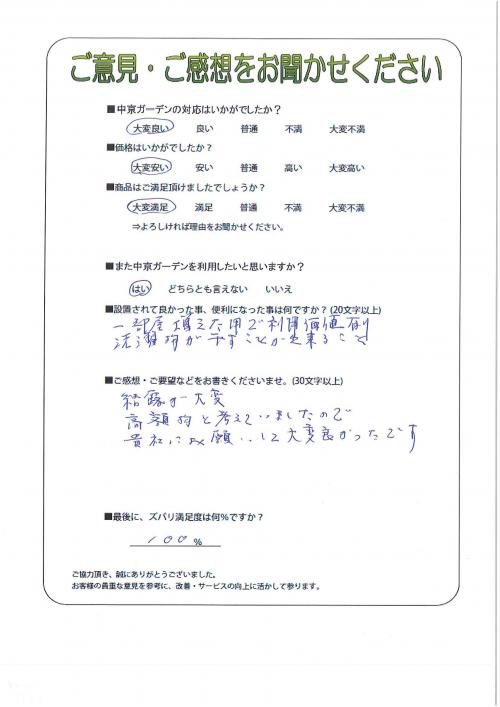 ご意見・ご感想をお聞かせください
■中京ガーデンの対応はいかがでしたか？
大変良い 良い 普通 不満 大変不満
■価格はいかがでしたか？
大変安い 安い 普通 高い 大変高い
■商品はご満足頂けましたでしょうか？
大変満足 満足 普通 不満 大変不満
⇒よろしければ理由をお聞かせください。
■また中京ガーデンを利用したいと思いますか？
はい どちらとも言えない いいえ
■設置されて良かった事、便利になった事は何ですか？(20文字以上)
一部屋増えた用で利用価値
洗濯物が干すことが出来ること
■ご感想・ご要望などをお書きくださいませ。(30文字以上)
大変
高額物と考えていましたので
貴社にお願いして大変良かったです
■最後に、ズバリ満足度は何％ですか？
100％
ご協力頂き、誠にありがとうございました。
お客様の貴重な意見を参考に、改善・サービスの向上に活かして参ります。